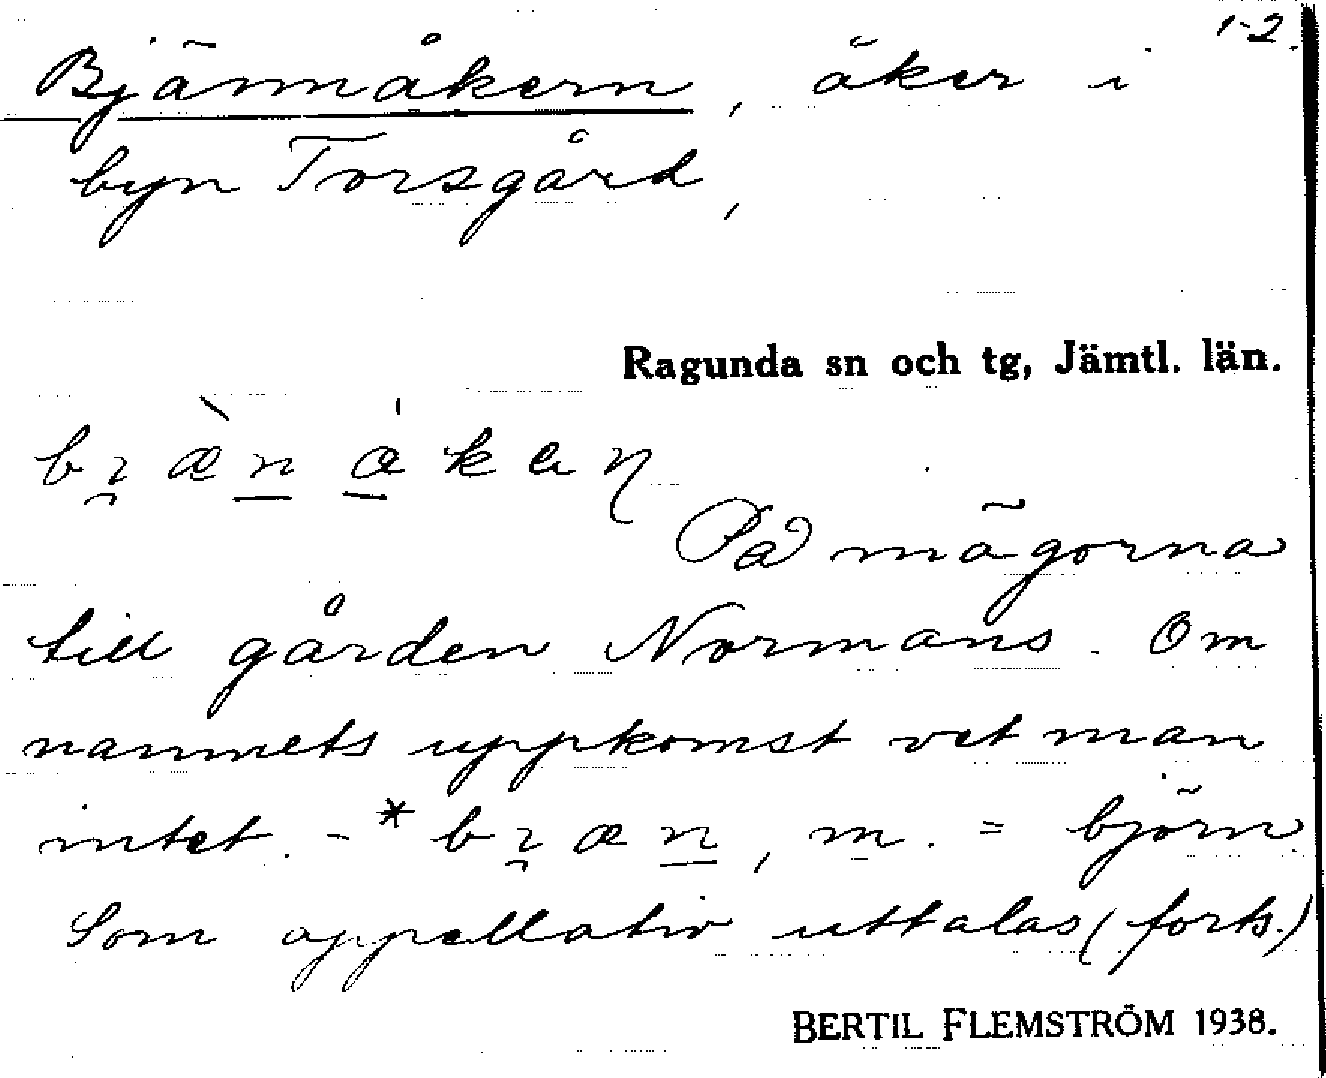 1-2.
Bjännåkern, åker i
byn Torsgård,
Ragunda sn och tg, Jämtl. län.
På mågorna
till gården Normans. Om
namnets uppkomst vet man
intet. - *bɿæn, m. = björn
Som appellativ uttalas (forts.)
BERTIL FLEMSTRÖM 1938.